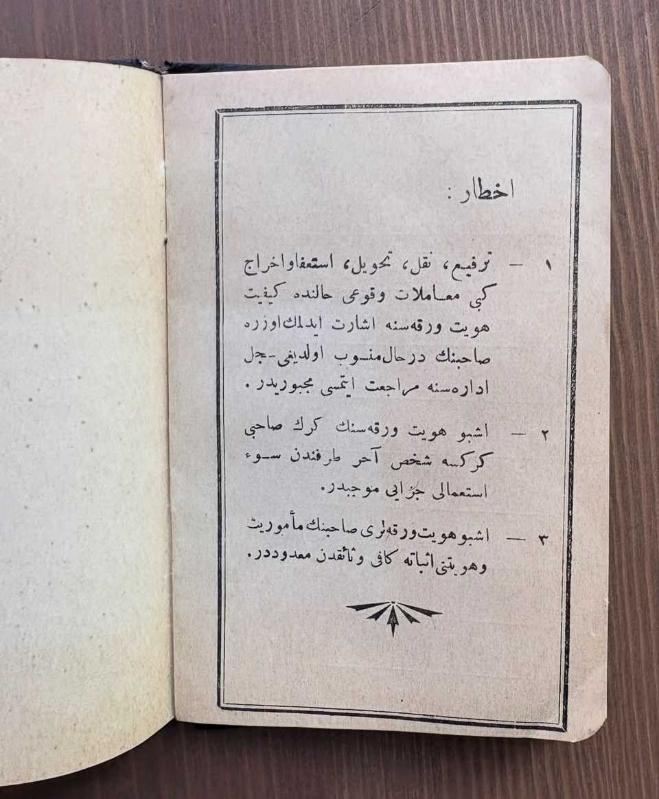 اخطار :
١ — ترفيع، نقل، تحويل، استعفا واخراج
كبى معاملات وقوعى حالنده كيفيت
هويت ورقه‌سنه اشارت ايدلمك اوزره
صاحبنك درحال منسوب اولديغى سجل
اداره‌سنه مراجعت ايتمسى مجبوريدر .
٢ — اشبو هويت ورقه‌سنك كرك صاحبى
كركسه شخص آخر طرفندن سوء
استعمالى جزايى موجبدر.
٣ — اشبو هويت ورقه‌لرى صاحبنك مأموريت
وهويتنى اثباته كافى وثائقدن معدوددر.